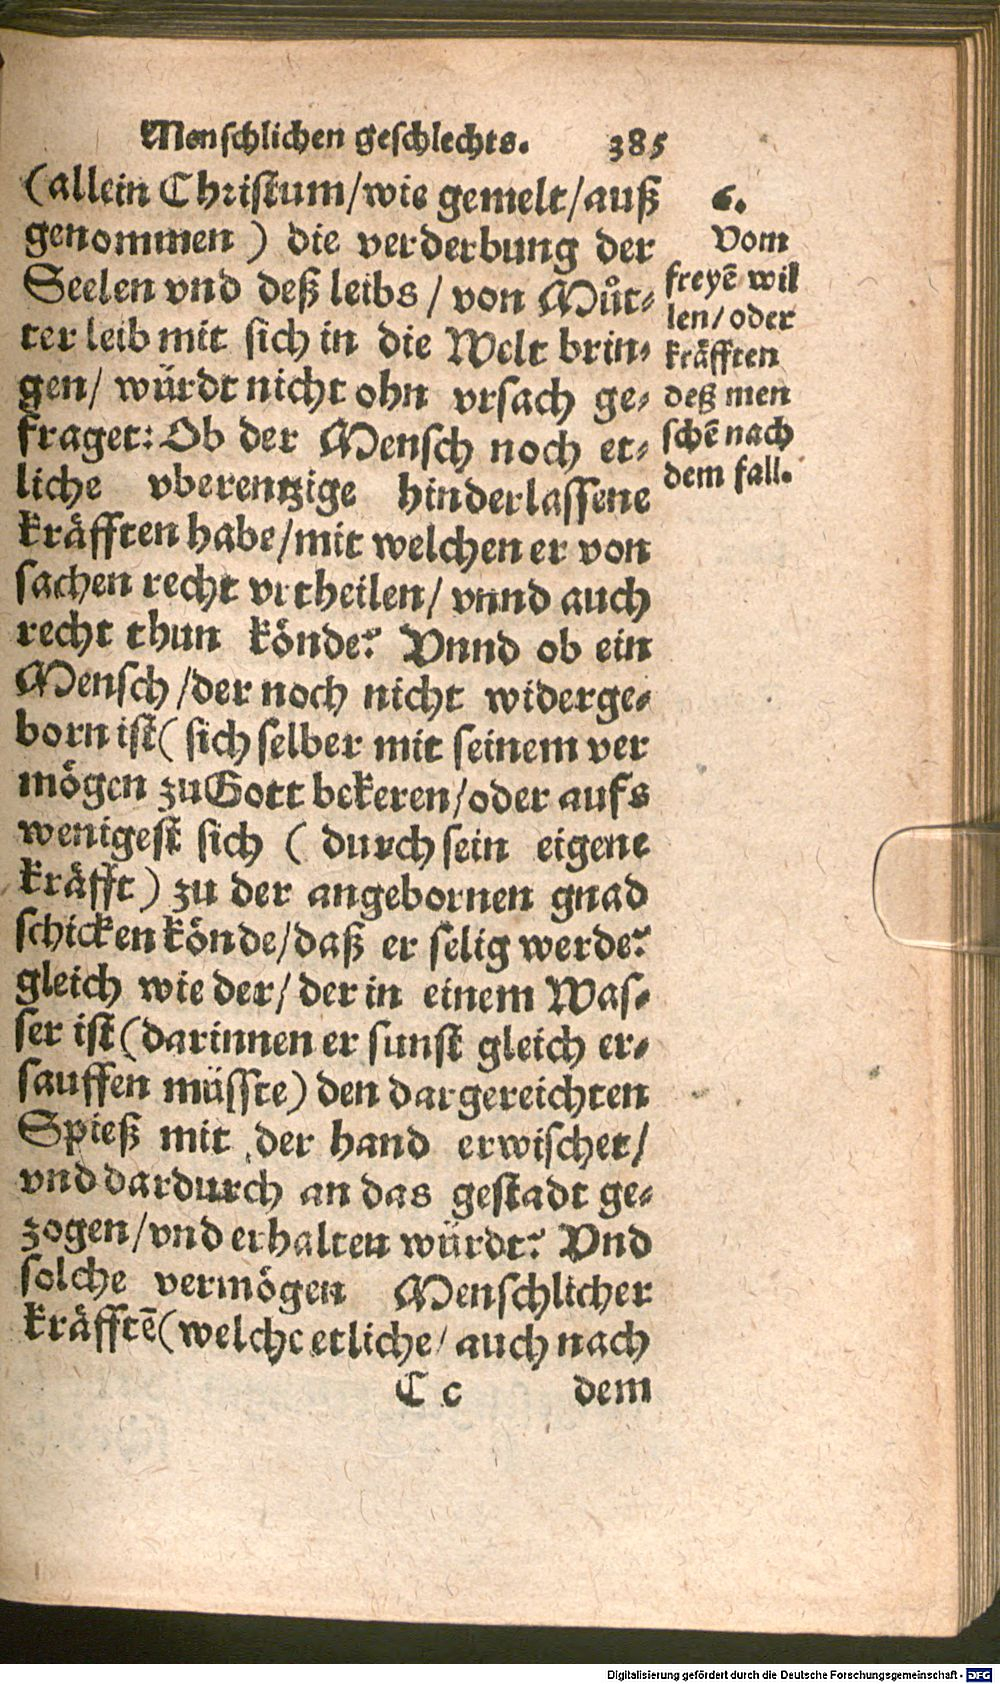 Menschlichen geschlechts. 385
(allein Christum/wie gemelt/auß
genommen) die verderbung der
Seelen vnd deß leibs/von Muͦt-
ter leib mit sich in die Welt brin-
gen/ würdt nicht ohn vrsach ge-
fraget: Ob der Mensch noch et-
liche vberentzige hinderlassene
kräfften habe/mit welchen er von
sachen recht vrtheilen/ vnnd auch
recht thun könde? Vnnd ob ein
Mensch/der noch nicht widerge-
born ist( sich selber mit seinem ver
mögen zu Gott bekeren/oder aufs
wenigest sich ( durch sein eigene
kräfft) zu der angebornen gnad
schicken könde/daß er selig werde?
gleich wie der/ der in einem Was-
ser ist(darinnen er sunst gleich er-
sauffen müsste) den dargereichten
Spieß mit der hand erwischet/
vnd dardurch an das gestadt ge-
zogen/vnd erhalten würdt? Vnd
solche vermögen Menschlicher
kräfftē(welche etliche/ auch nach
C c dem
6.
Vom
freyē wil
len/ oder
kräfften
deß men
schē nach
dem fall.
Digitalisierung gefördert durch die Deutsche Forschungsgemeinschaft - DFG